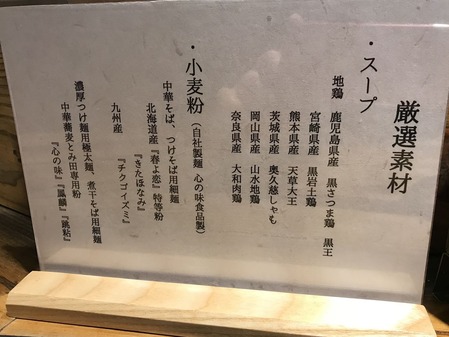 厳選素材
・スープ
地鶏 鹿児島県産 黒さつま鶏 黒王
宮崎県産 黒岩土鶏
熊本県産 天草大王
茨城県産 奥久慈しゃも
岡山県産 山水地鶏
奈良県産 大和肉鶏
・小麦粉（自社製麺 心の味食品製）
中華そば、つけそば用細麺
北海道産『春よ恋』特等粉
『きたほなみ』
九州産 『チクゴイズミ』
濃厚つけ麺用極太麺、煮干そば用細麺
中華蕎麦とみ田専用粉
『心の味』『鳳麟』『跳粘』